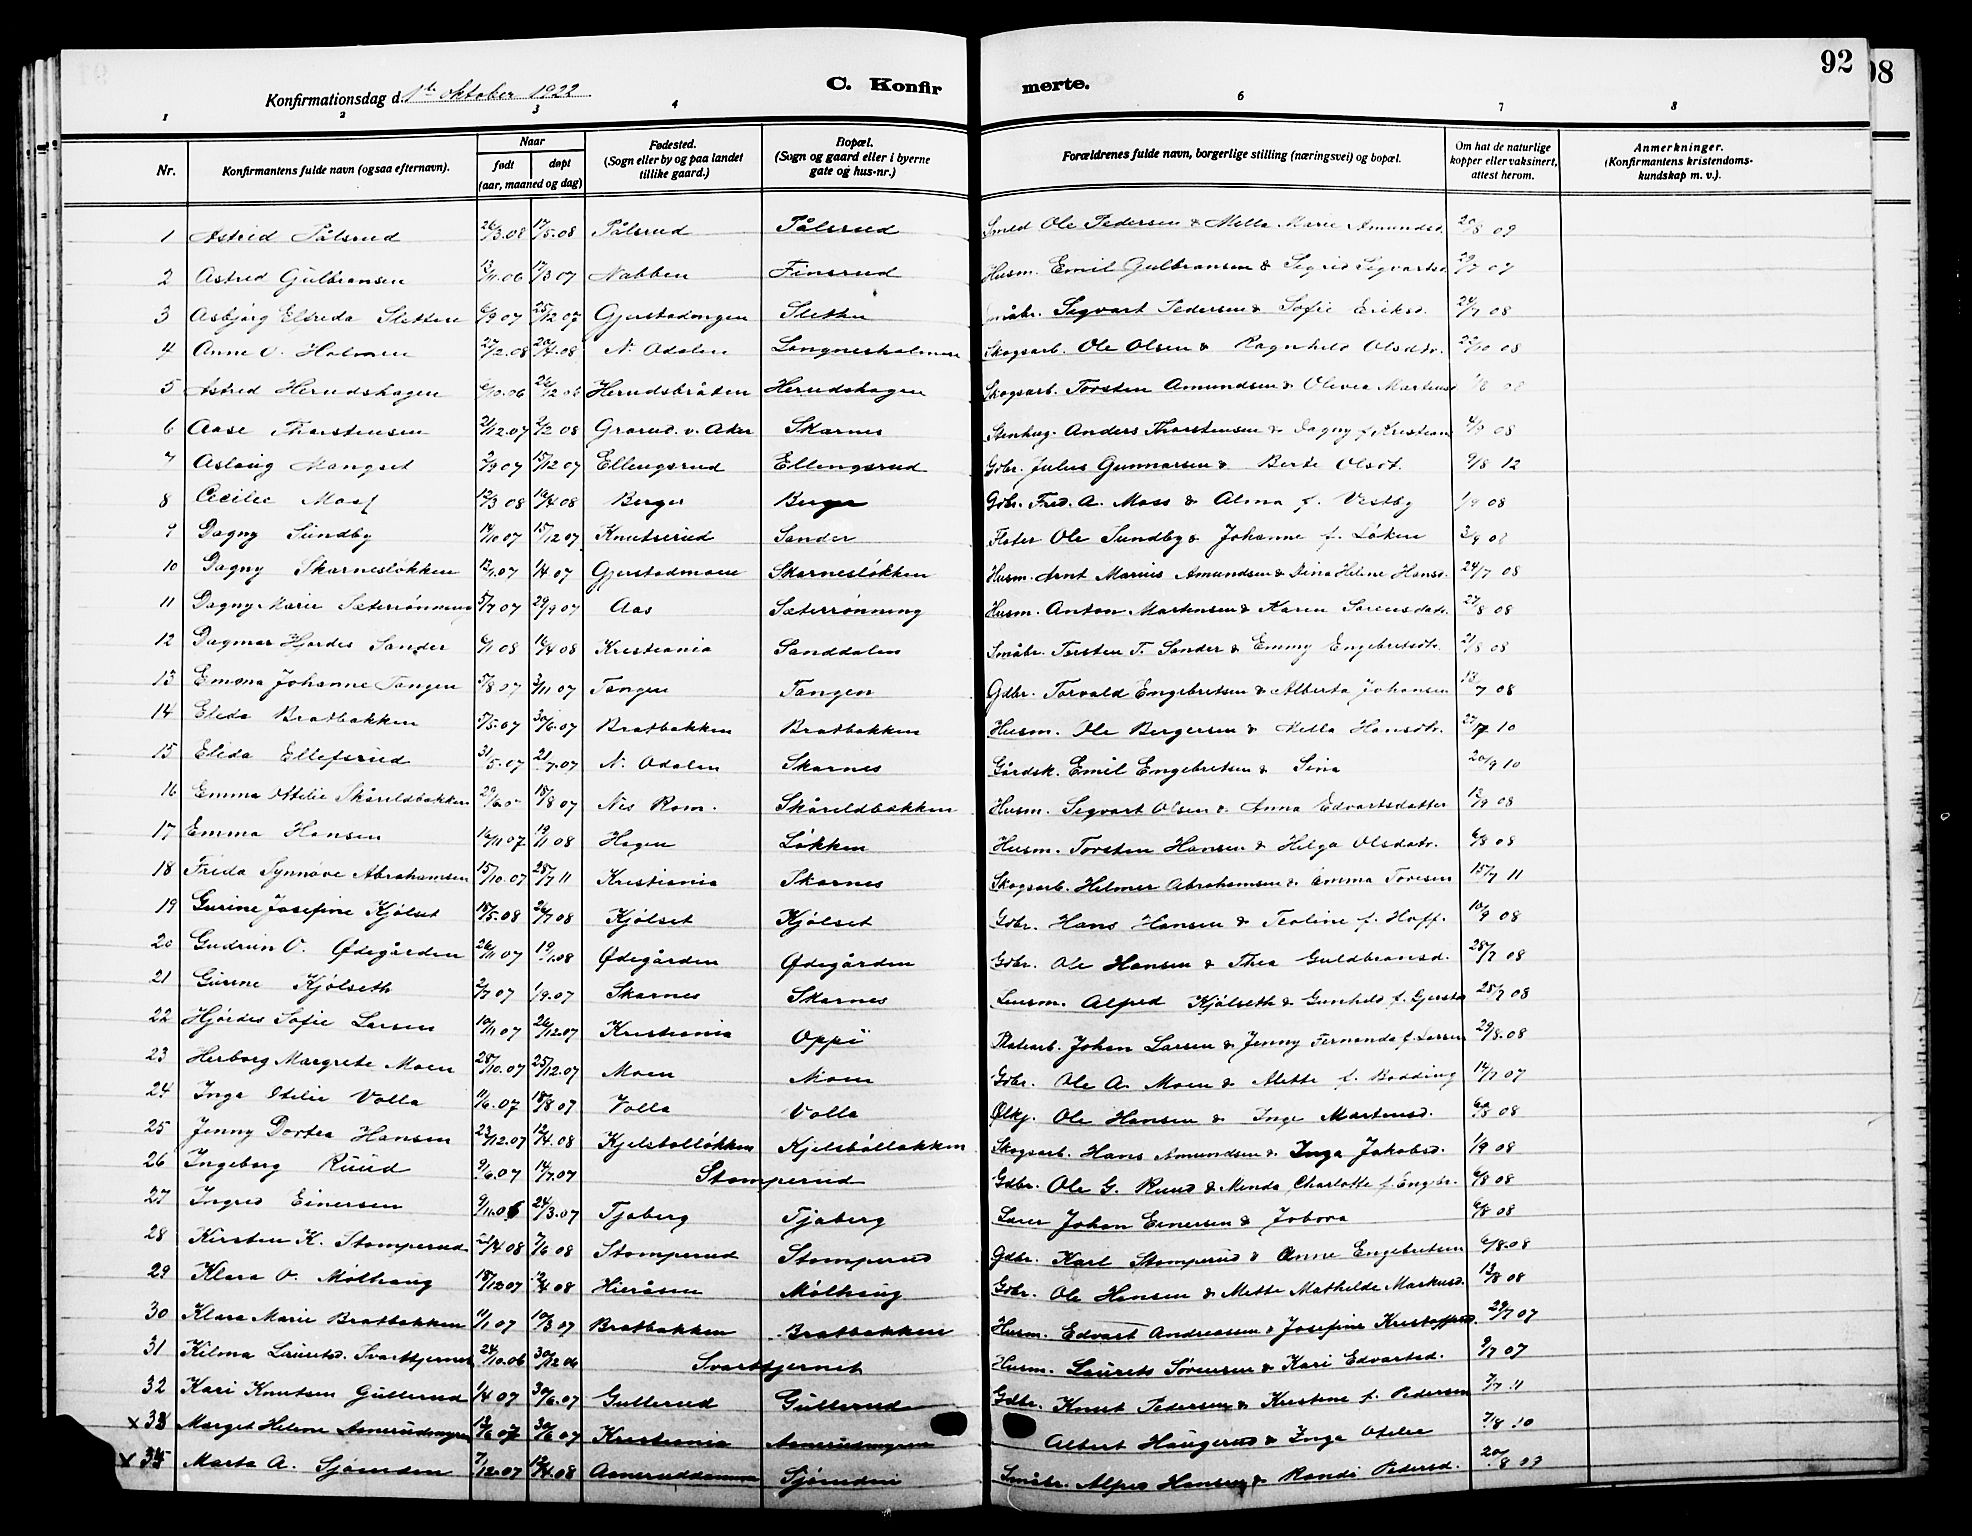 92
98
Konfirmationsdag d. 1ste oktober 1922.
C. Konfir merte.
1 2 3 4 6 7 8
Nr. Konfirmantens fulde navn (ogsaa efternavn). Naar født døpt (aar, maaned og dag) Fødested. (Sogn eller by og paa landet tillike gaard.) Bopæl. (Sogn og gaard eller i byerne gate og hus-nr.) Forældrenes fulde navn, borgerlige stilling (næringsvei) og bopæl. Om hat de naturlige kopper eller vaksinert, attest herom. Anmerkninger. (Konfirmantens kristendoms- kundskap m. v.).
1 Astrid Pålsrud 26/3.08 17/5.08 Pålsrud Pålsrud Smed Ole Pedersen & Mella Marie Amundsd. 20/8 09
2 Astrid Gulbransen 13/11.06 17/3 07 Nabben Finsrud Husm. Emil Gulbransen & Sigrid Sigvartsd. 29/7 07
3 Asbjørg Elfrida Sletten 6/9 07 25/12 07 Gjerstadengen Sletten Småbr. Segvart Pedersen & Sofie Eriksd. 24/7 08
4 Anne O. Holmen 27/2.08 20/4.08 N. Odalen Langnesholmen Skogsarb. Ole Olsen & Ragnhild Olsdtr. 22/10 08
5 Astrid Herudshagen 6/10.06 26/12 06 Herudsbråten Herudshagen Skogsarb. Torsten Amundsen & Olivea Martinsd. 1/8 08
6 Aase Thorstensen 21/12.07 2/2 08 Grorud v. Aker Skarnes Stenhug. Anders Thorstensen & Dagny f. Kristians 4/9 08
7 Aslaug Mangset 2/9 07 15/12 07 Ellingsrud Ellingsrud Gdbr. Julius Gunnarsen & Berte Olsdt. 9/8 12
8 Cecilie Moss 12/3 08 16/4 08 Berger Berger Gdbr. Fred. A. Moss & Alma f. Vestby 1/9 08
9 Dagny Sundby 14/10 07 15/12 07 Knutsrud Sander Fløter Ole Sundby & Johanne f. Løken 3/9 08
10 Dagny Skarnesløkken 12/1.07 1/4 07 Gjerstadmoen Skarnesløkken Husm. Arnt Marius Amundsen & Dina Helene Hansd. 24/7 08
11 Dagny Marie Sæterrønning 5/7 07 29/9 07 Aas Sæterrønning Husm. Anton Martensen & Karen Sørensdatr. 27/8 08
12 Dagmar Hjørdis Sander 6/1 08 16/4 08 Kristiania Sanddalen Småbr. Torsten T. Sander & Emmy Engebretsdtr. 21/8 08
13 Emma Johanne Tangen 5/8 07 3/11 07 Tangen Tangen Gdbr. Torvald Engebretsen & Alberta Johansen 18/7 08
14 Elida Bratbakken 7/5.07 30/6.07 Bratbakken Bratbakken Husm. Ole Bergersen & Mella Hansdtr. 27/7 10
15 Elida Ellefsrud 31/5.07 21/7.07 N. Odalen Skarnes Gårdsk. Emil Engebretsen & Sina 20/9 10
16 Emma Otelie Skåreldbakken 29/6.0 18/8 07 Nes Rom. Skåreldbakken Husm. Segvart Olsen & Anna Edvartsdatter 12/9 08
17 Emma Hansen 16/11 07 19/1 08 Hagen Løkken Husm. Torsten Hansen & Helga Olsdatr. 6/8 08
18 Frida Synnøve Abrahamsen 15/10.07 28/7 11 Kristiania Skarnes Skogsarb. Helmer Abrahamsen & Emma Toresen 15/7 11
19 Gurine Josefine Kjølset 18/5.08 26/7.08 Kjølset Kjølset Gdbr. Hans Hansen & Teoline f. Hoff. 10/9 08
20 Gudrun O. Ødegården 26/11 07 19/1.08 Ødegården Ødegården Gdbr. Ole Hansen & Thea Guldbransd. 28/7 08
21 Gurine Kjølseth 2/7 07 1/9.07 Skarnes Skarnes Lensm. Alfred Kjølseth & Gunhild f. Gjersta 25/7 08
22 Hjørdes Sofie Larsen 10/11 07 26/12.07 Kristiania Oppi Platearb. Johan Larsen & Jenny Fernanda f. Larsen 29/8.08
23 Herborg Margrete Moen 28/10.07 25/12.07 Moen Moen Gdbr. Ole A. Moen & Mette f. Bodding 17/7 07
24 Inga Otelie Volla 11/6.07 18/8 07 Volla Volla Ølkj. Ole Hansen & Inge Martensd. 6/8 08
25 Jenny Dortea Hansen 23/12.07 12/4.08 Kjelsbølløkken Kjelsbølløkken Skogsarb. Hans Amundsen & Inga Jakobsd. 1/9 08
26 Ingeborg Ruud 9/6.07 14/7.07 Stomperud Gdbr. Ole G. Ruud & Minda Charlotte f. Engbr. 6/8 08
27 Ingrid Einersen 9/11.06 24/3.07 Tjaberg Tjaberg Lærer Johan Einersen & Jobora 6/8 08
28 Kirsten K. Stomperud 21/4 08 7/6 08 Stomperud Stomperud Gdbr. Karl Stomperud & Anne Engebretsen 6/8.08
29 Klara O. Mølhaug 18/12 07 12/4 08 Hieråsen Mølhaug Gdbr. Ole Hansen & Mette Mathilde Markusd. 13/8 08
30 Klara Marie Bratbakken 11/1 07 10/3 07 Bratbakken Bratbakken Husm. Edvart Andreassen & Josefine Kristoffersd 29/7 07
31 Kilma Lauretsd. Svarttjernet 24/10.06 30/12 06 Svarttjernet Husm. Laurets Sørensen & Kari Edvartsd. 9/7 07
32 Kari Knutsen Gullerud 1/4 07 30/6.07 Gullerud Gullerud Gdbr. Knut Pedersen & Kristine f. Pedersen 7/7 11
x 33 Marget Helene Asnerudmyren 13/6 07 30/6 07 Kristiania Asnerudmyren Albert Haugerud & Inga Otelie 7/8 10
x 35 Marta A. Sjøenden 7/12.07 12/4.08 Asneruddammen Sjøenden Småbr. Alfred Hansen & Randi Pedersd. 20/8 09